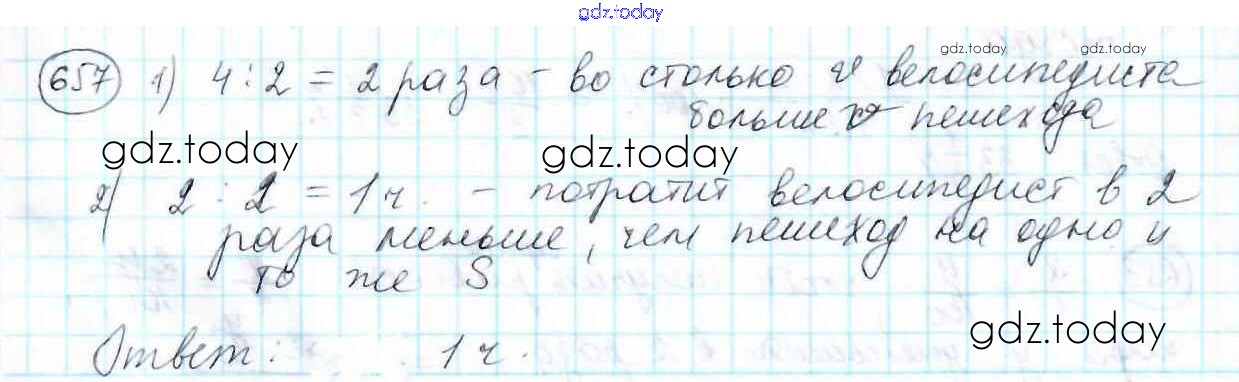 gdz.today
657 1) 4 : 2 = 2 раза - во столько v велосипедиста
gdz.today
больше v пешехода
gdz.today gdz.today
2) 2 : 2 = 1 ч. - потратит велосипедист в 2
раза меньше, чем пешеход на одно и
то же S
gdz.today
Ответ: 1 ч.